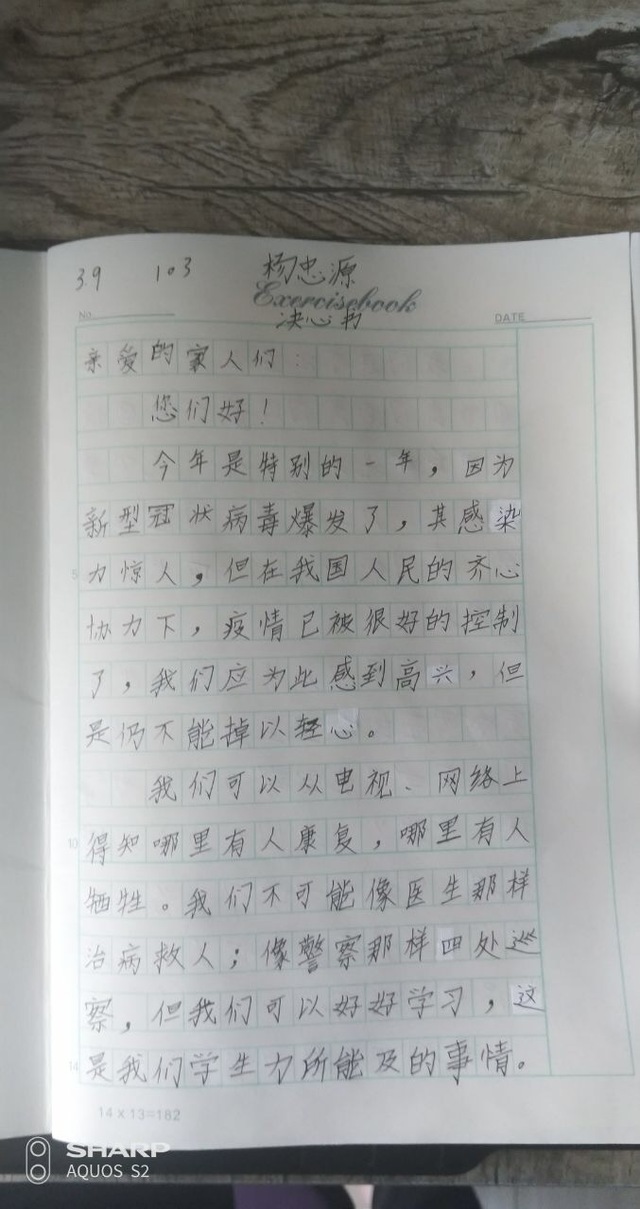 39 103 杨忠源
Exercisebook
No. 决心书 DATE
亲爱的家人们:
您们好!
今年是特别的一年,因为
新型冠状病毒爆发了,其感染
5 力惊人,但在我国人民的齐心
协力下,疫情已被很好的控制
了,我们应为此感到高兴,但
是仍不能掉以轻心。
我们可以从电视、网络上
10 得知哪里有人康复,哪里有人
牺牲。我们不可能像医生那样
治病救人;像警察那样四处巡
察,但我们可以好好学习,这
14 是我们学生力所能及的事情。
14×13=182
SHARP
AQUOS S2